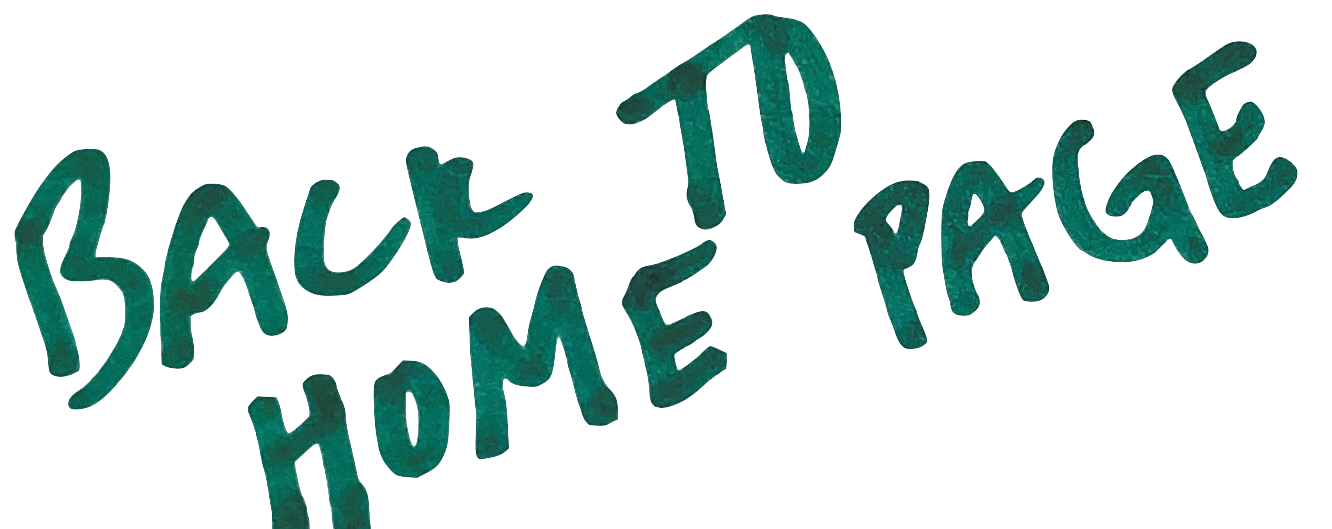 BACK TO
HOME PAGE